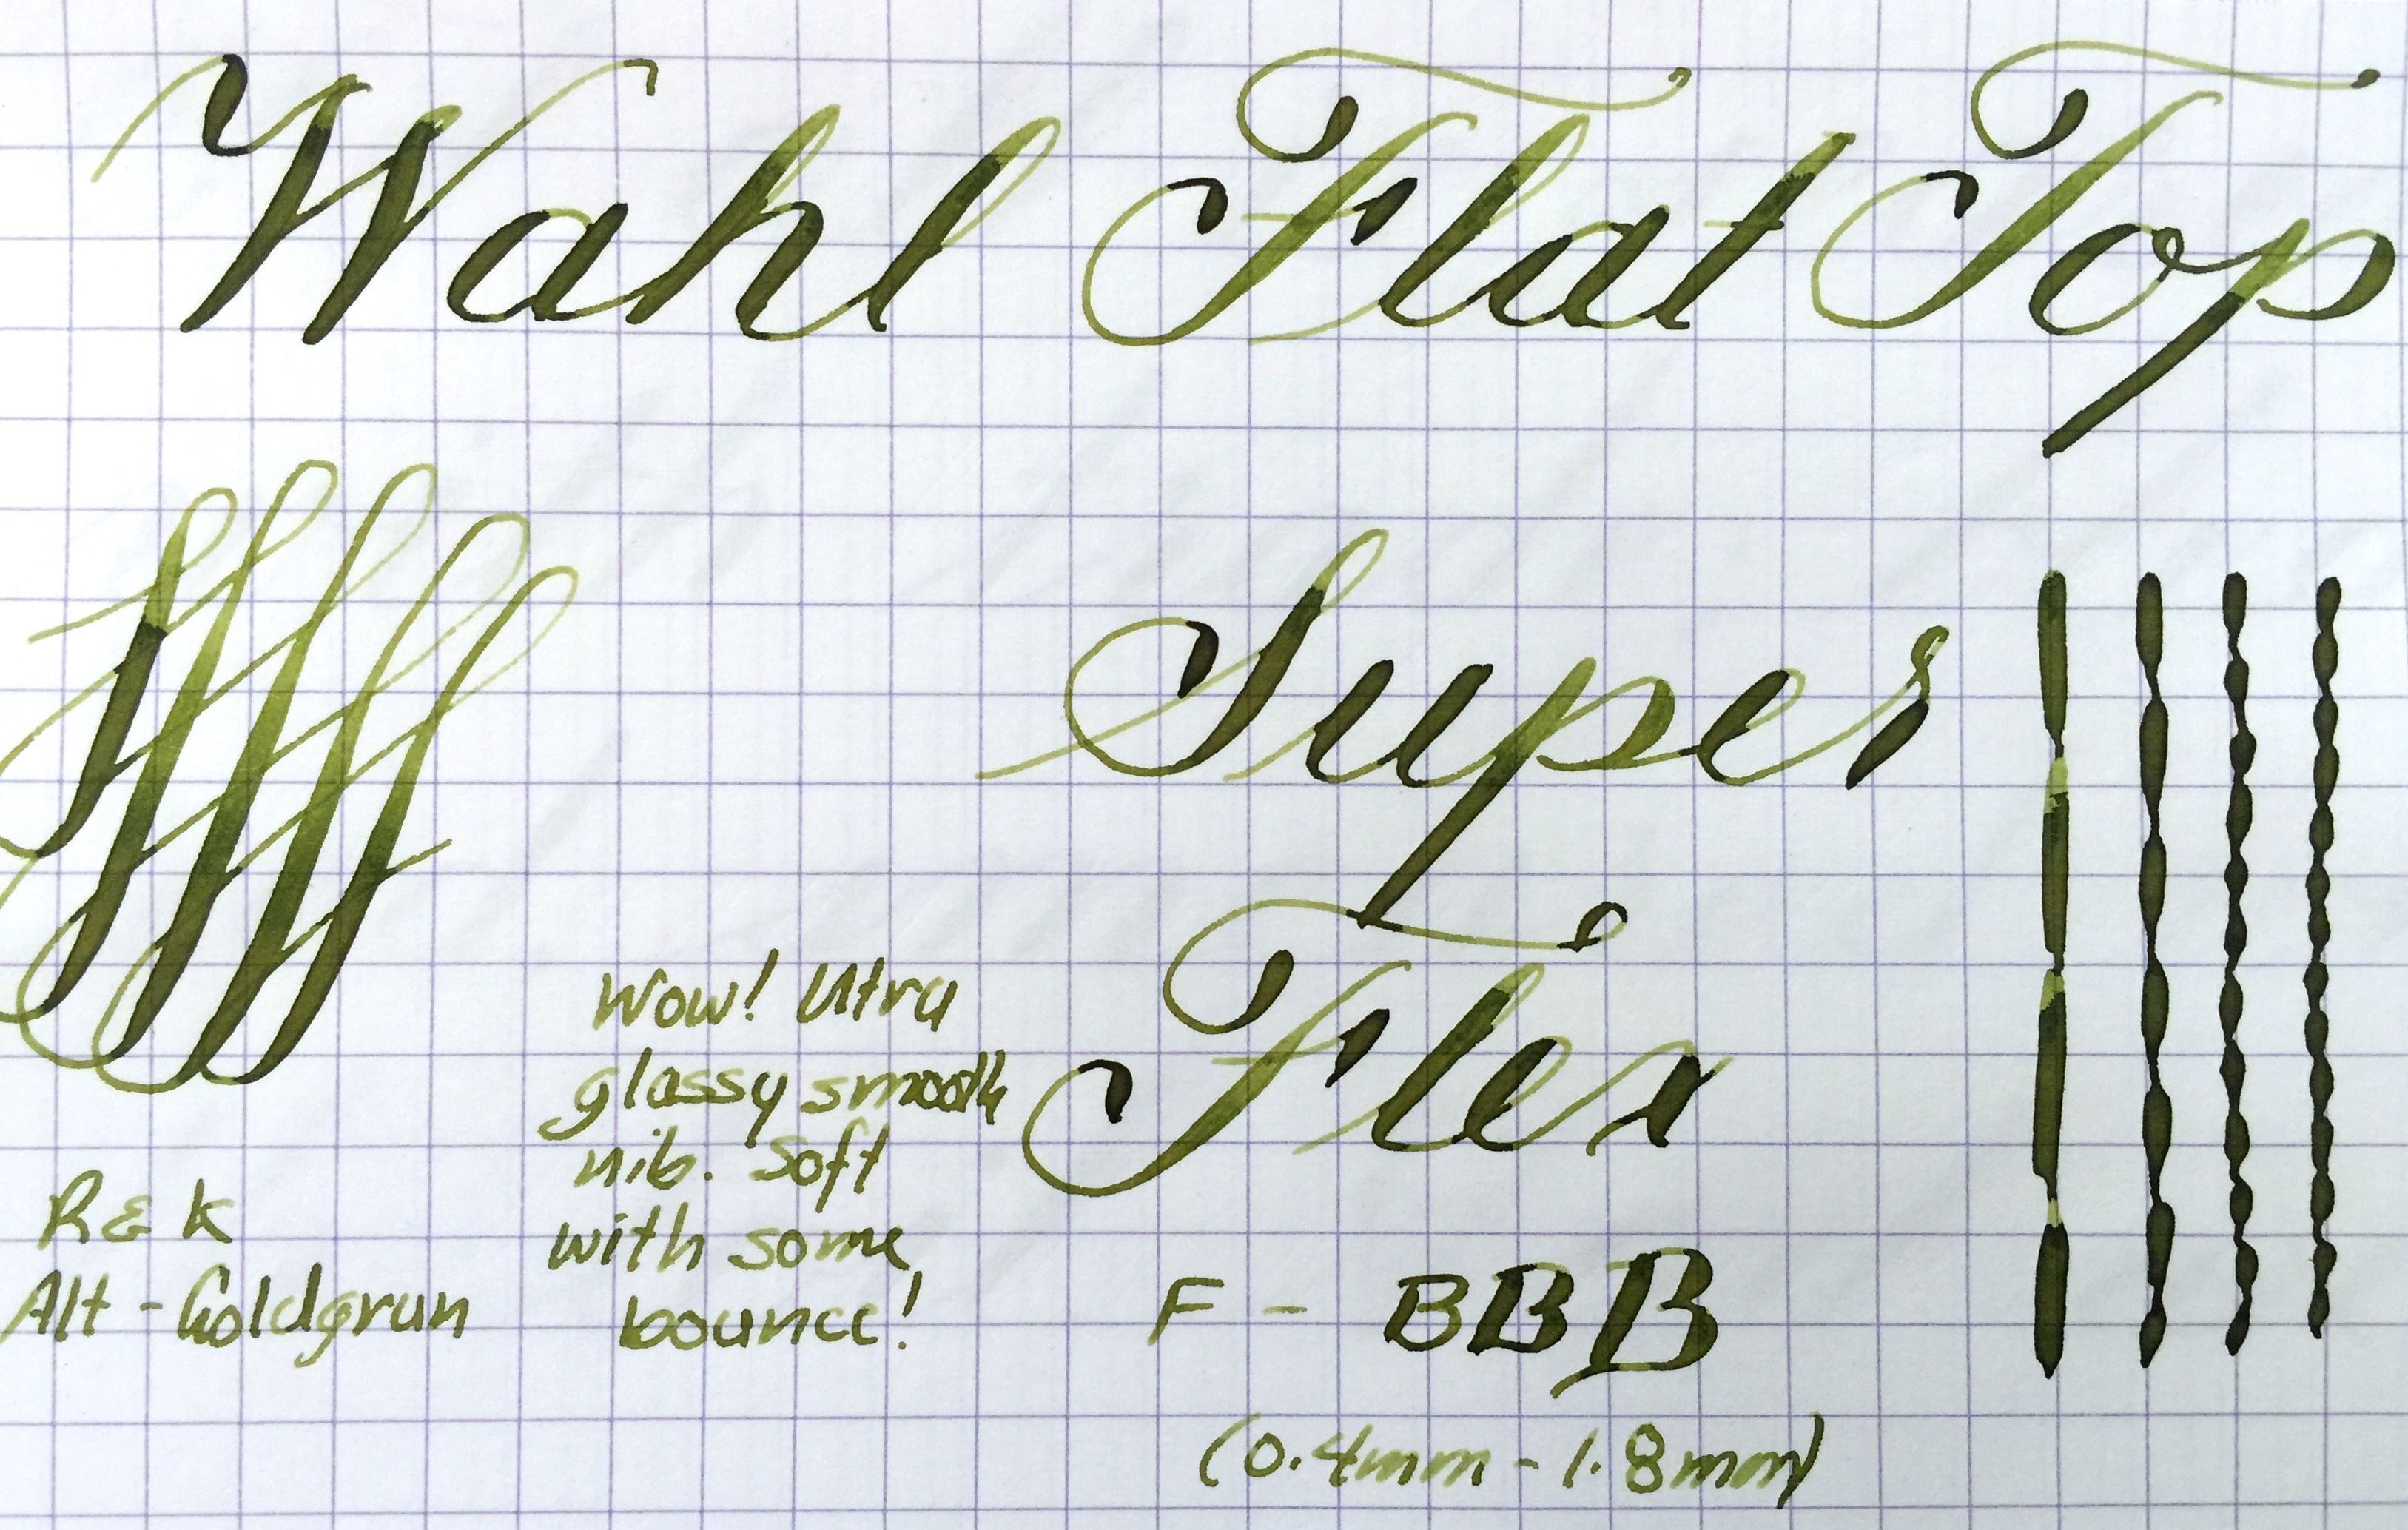 Wahl Flat Top
Super
Flex
Wow! Utra
glassy smooth
nib. Soft
with some
bounce!
R & K
Alt - Goldgrun
F - BBB
(0.4mm - 1.8mm)